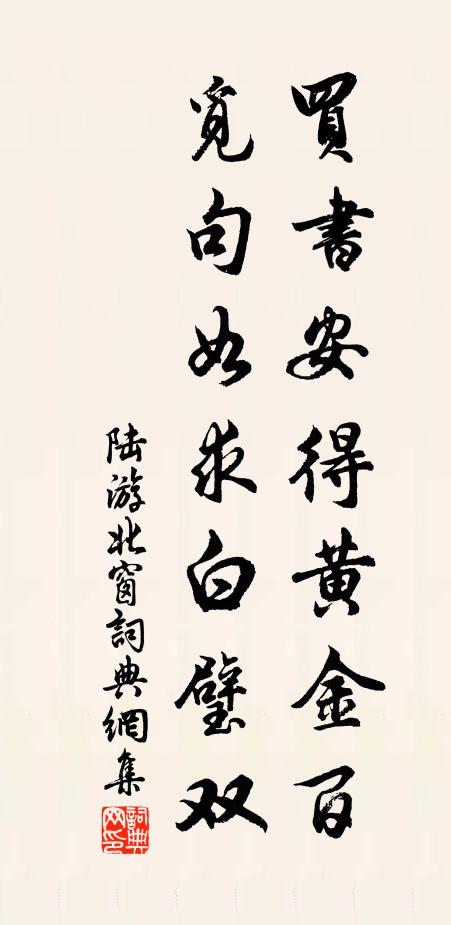 買書安得黄金百
覓句如求白璧双
陆游北窗詞典網集
詞典网印